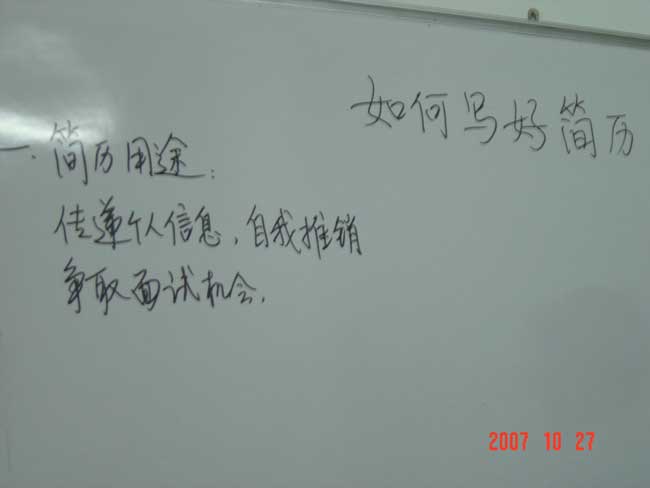 如何写好简历
一.简历用途:
传递个人信息,自我推销
争取面试机会.
2007 10 27